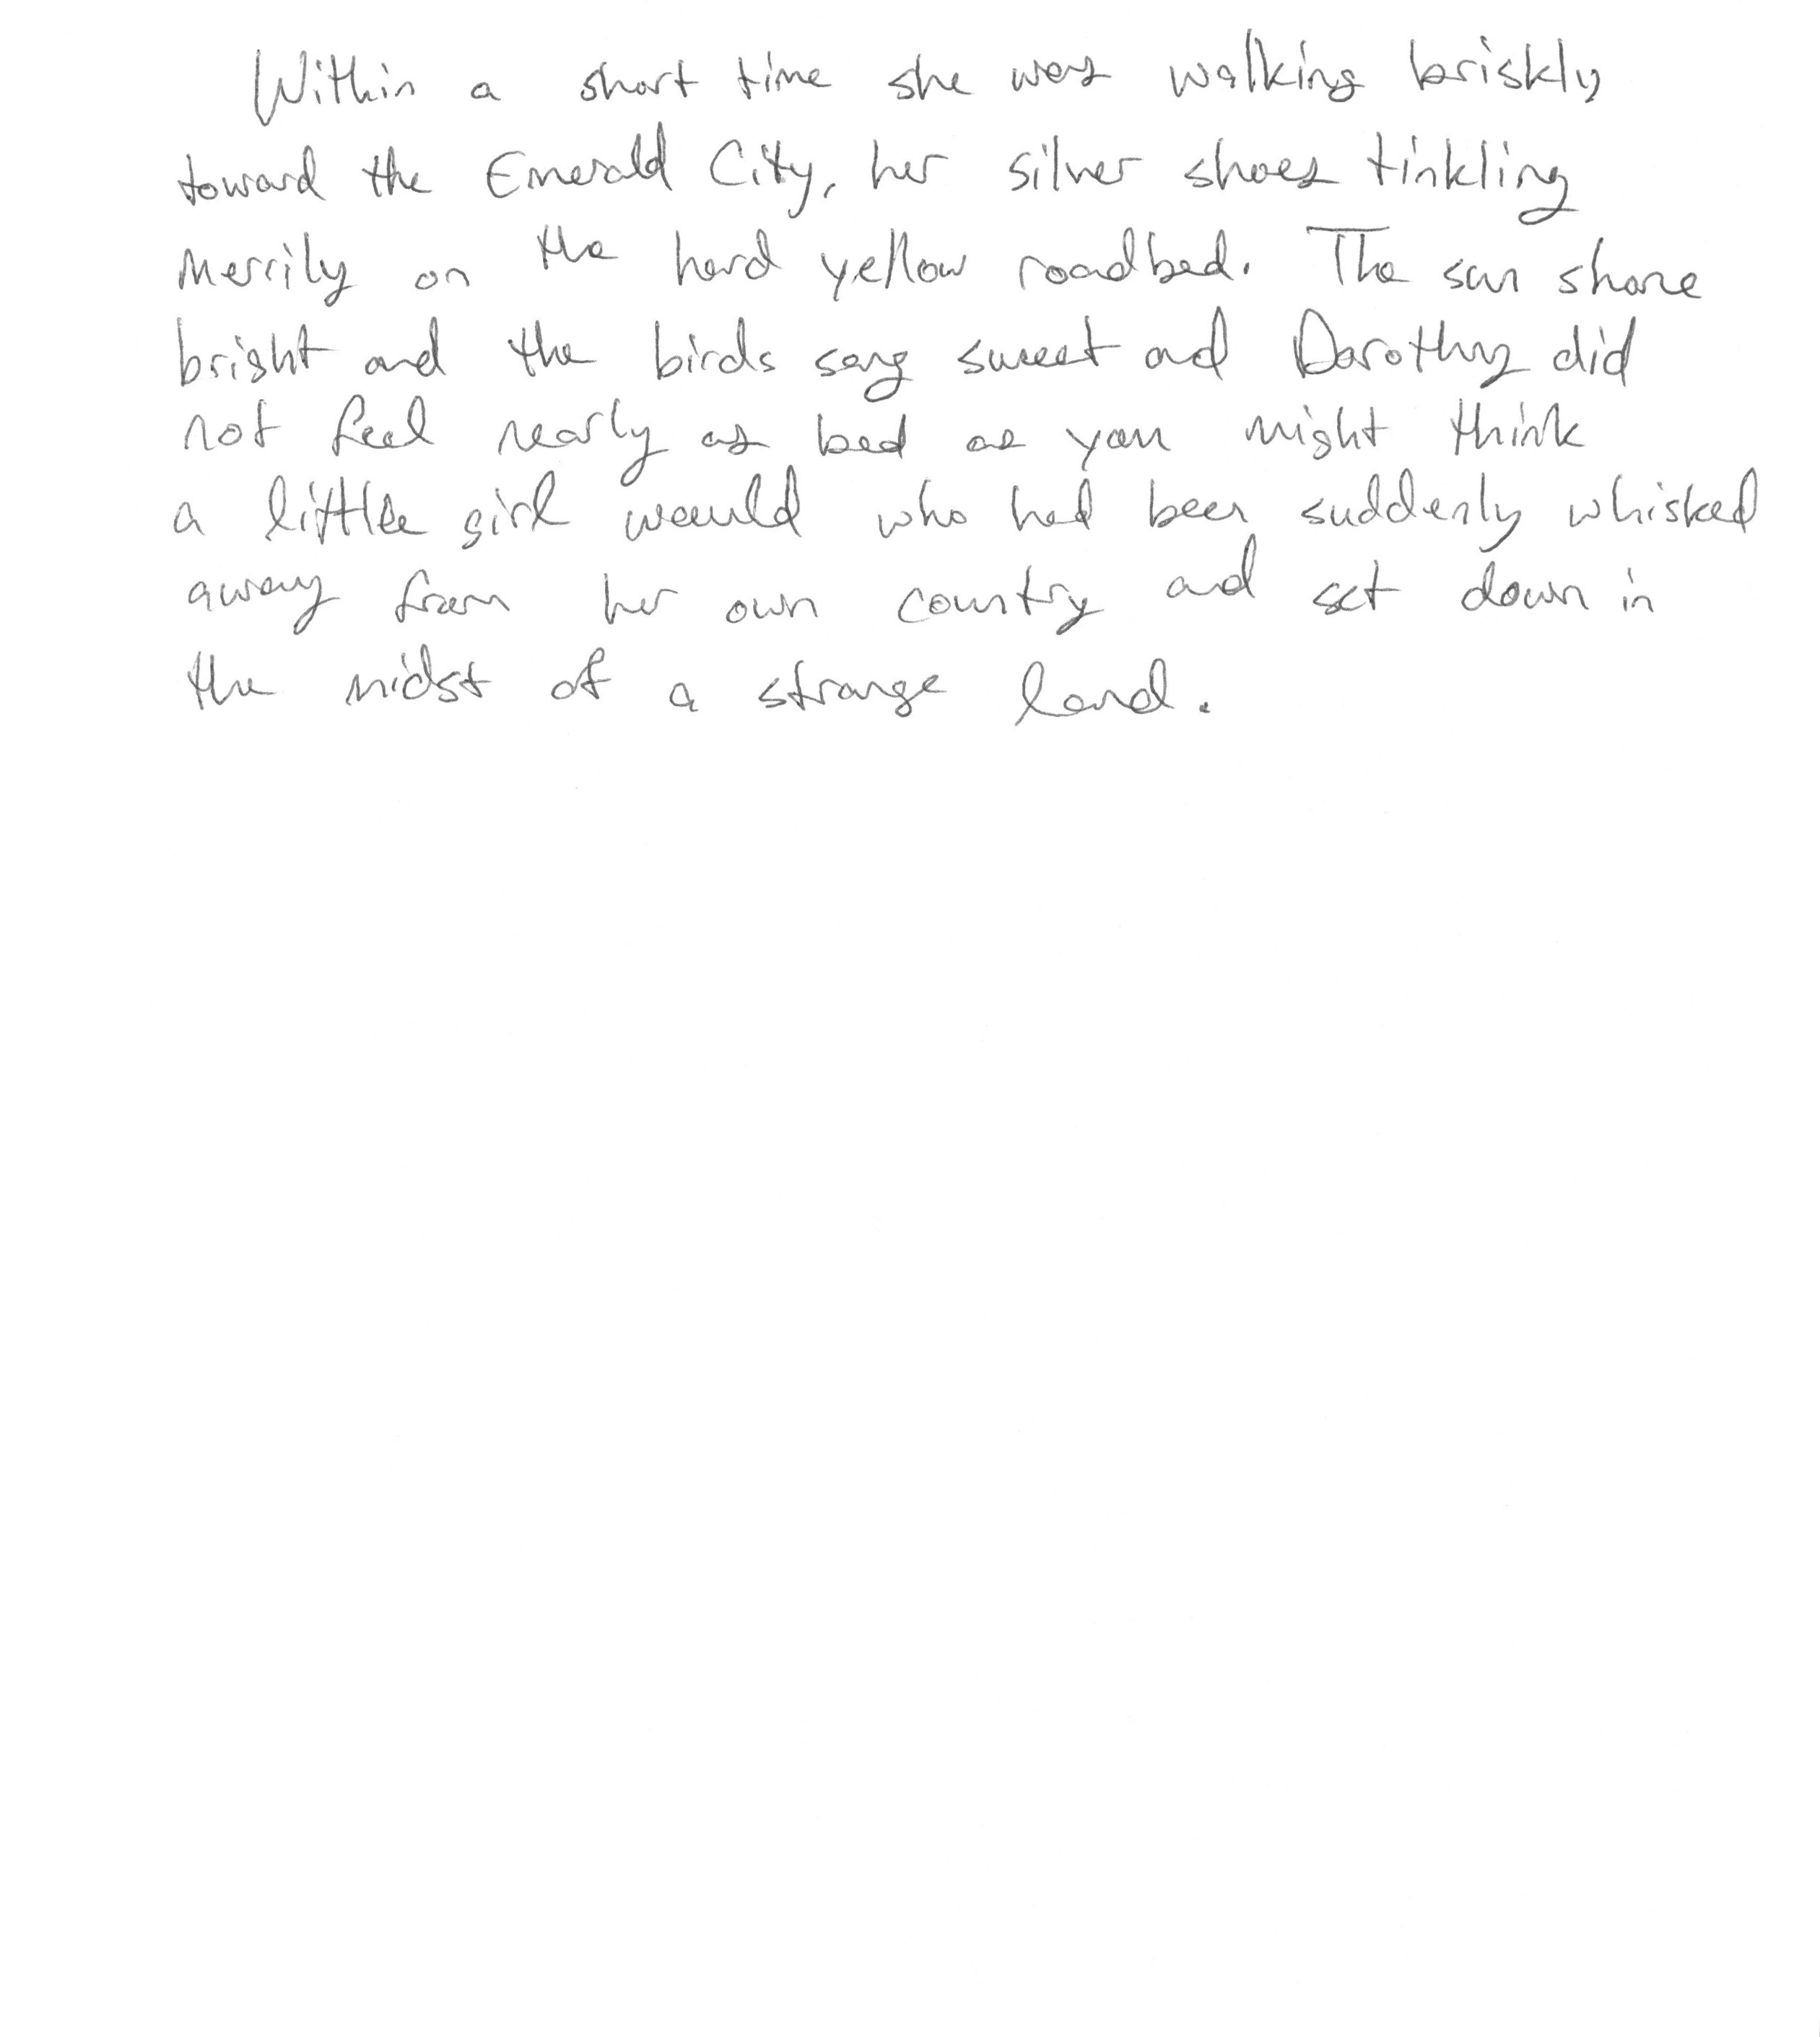 Within a short time she was walking briskly
toward the Emerald City, her silver shoes tinkling
merrily on the hard yellow roadbed. The sun shone
bright and the birds sang sweet and Dorothy did
not feel nearly as bad as you might think
a little girl would who had been suddenly whisked
away from her own country and set down in
the midst of a strange land.